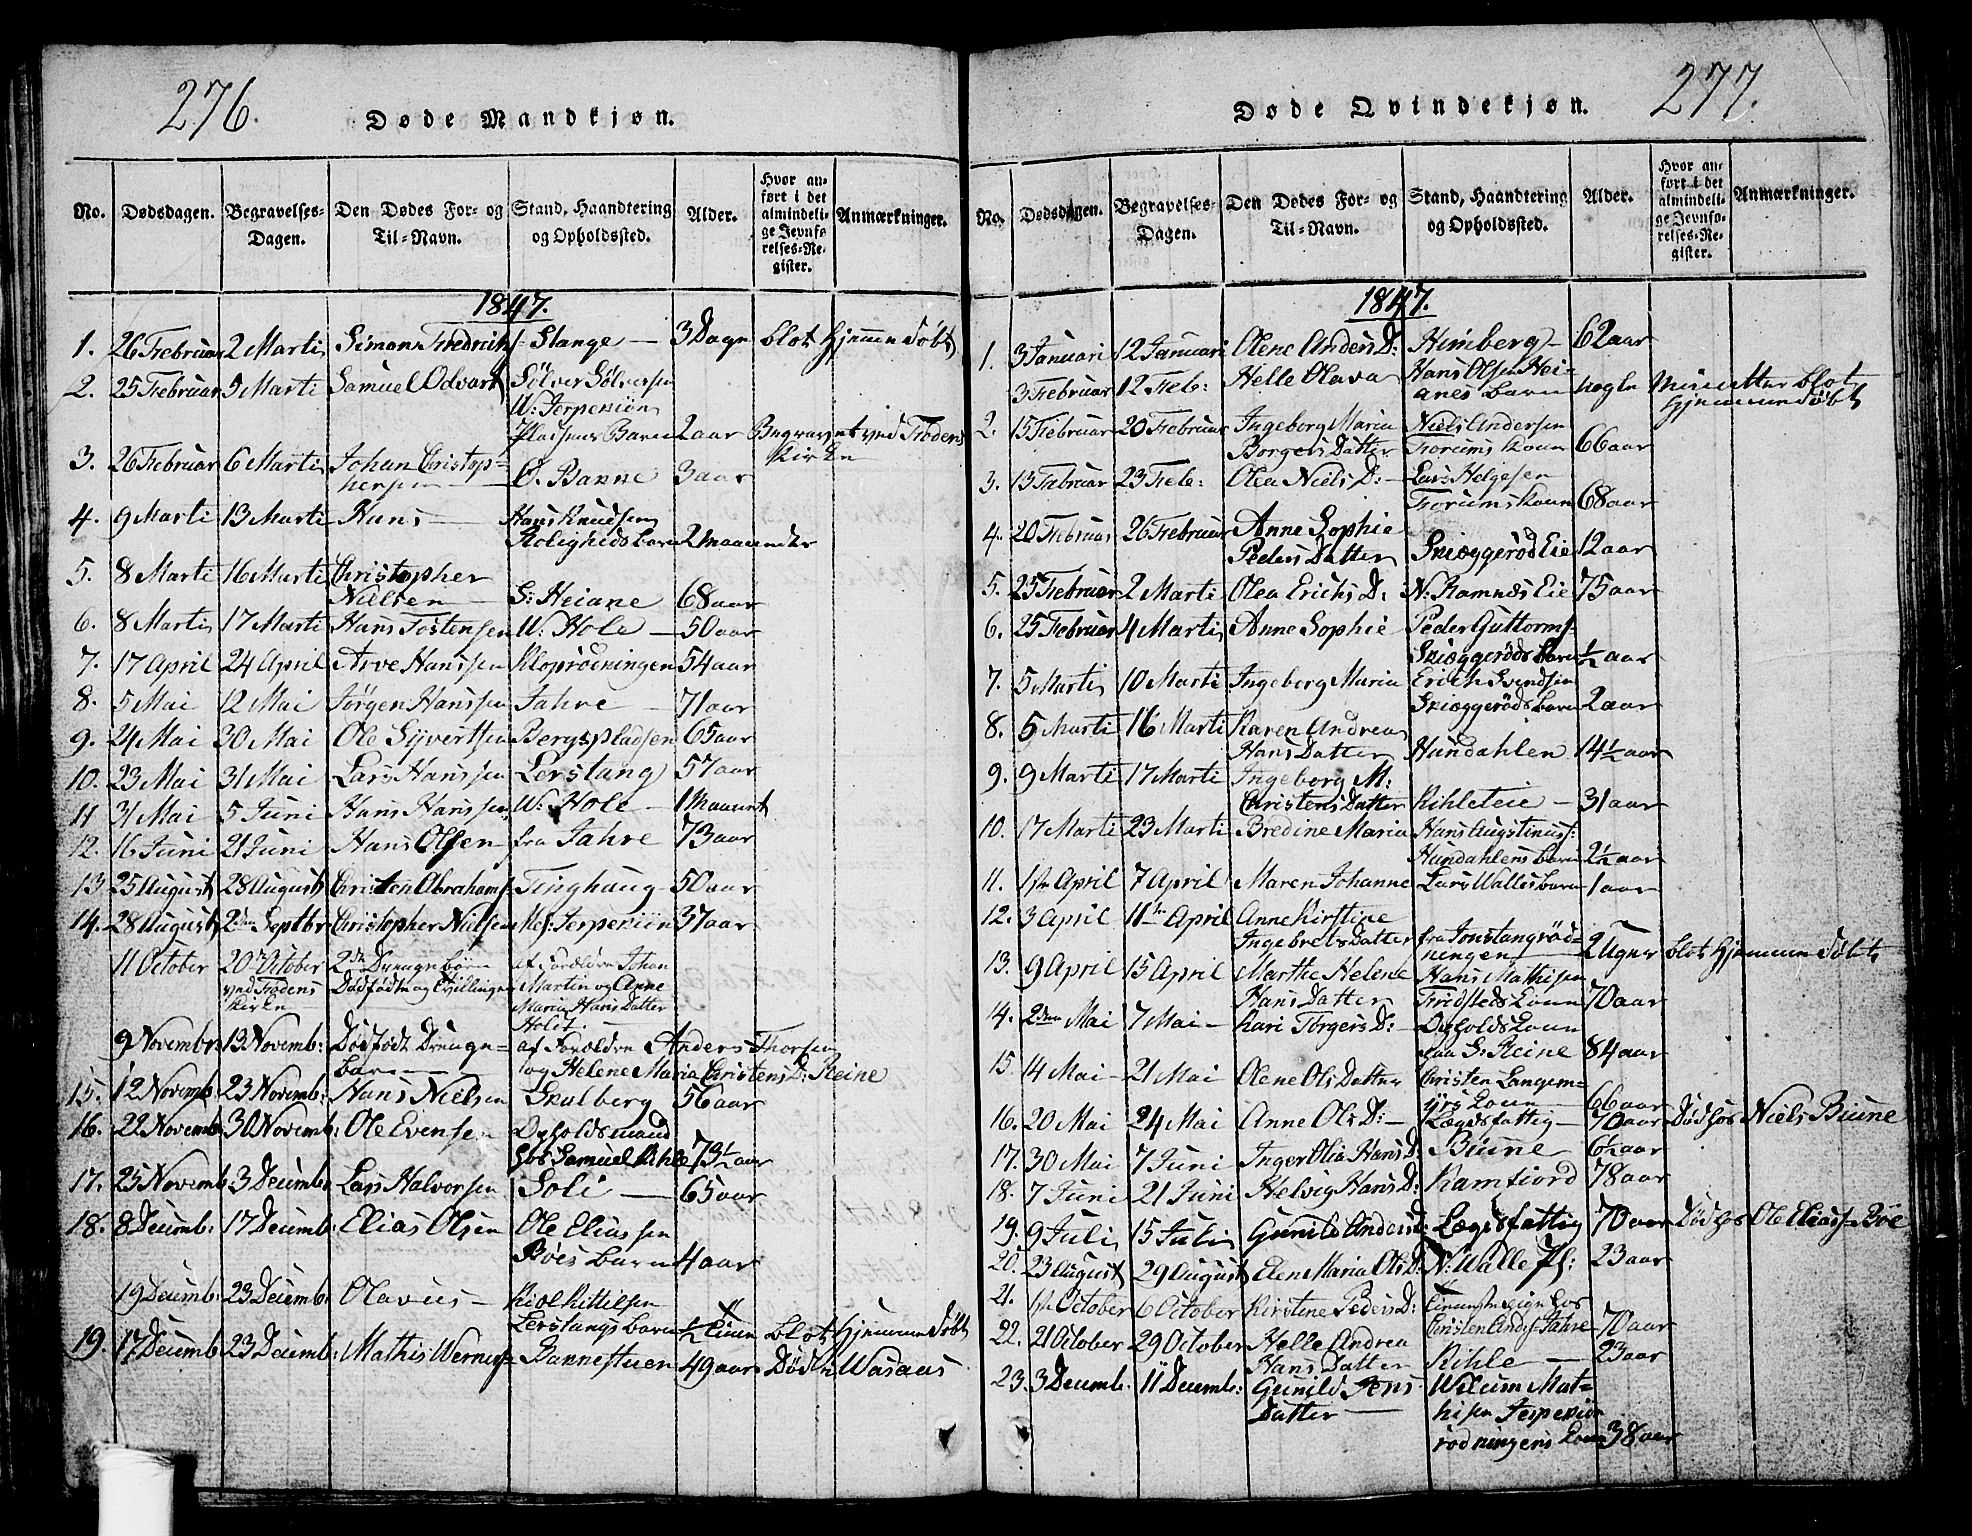 276.
Døde Mandkjøn.
No. Dødsdagen. Begravelses-Dagen. Den Dødes For- og Til-Navn. Stand, Haandtering og Opholdssted. Alder. Hvor anført i det almindelige Jevnførelses-Register. Anmærkninger.
1847.
1. 26 Februar 2 Marti Simon Fredriks: Slange — 3 Dage blot hjemme døbt
2. 25 Februar 5 Marti Samuel Odvart Sølver Sølvessen
W: Jerpekiün
Pladsens Barn 2 aar Begravet ved Frodens
Kirke
3. 26 Februar 6 Marti Johan Christop-
hersen — Ø. Banne 3 aar
4. 9 Marti 13 Marti Hans — Hans Knudsen
Rolighedsbarn 2 maaneder
5. 8 Marti 16 Marti Christopher
Nielsen — S: Heiane 68 aar
6. 8 Marti 17 Marti Hans Tostensen W: Hole — 50 aar
7. 17 April 24 April Arve Hanssen Kloprødningen 54 aar
8. 5 Mai 12 Mai Jørgen Hanssen Jahre — 71 aar
9. 24 Mai 30 Mai Ole Syvertsen Bergspladsen 65 aar
10. 23 Mai 31 Mai Lars Hanssen Lerstang 57 aar
11 31 Mai 5 Juni Hans Hanssen W: Hole — 1 Maanet
12. 16 Juni 21 Juni Hans Olsen fra Jahre 73 aar
13 25 August 28 August Christen Abrahams: Tinghaug 50 aar
14. 28 August 2den Septbr Christopher Nielsen Mel: Jerpekiün 37 aar
11 October 20 October 2de Drenge børn af Foreldre Johan
ved Frodens Dødfødte og Tvillinger Martin og Anne
Kirke Maria Hans Datter
Holst. —
9 Novembr 13 Novemb: Dødfødt Drenge- af Foreldre Anders Thorsen
barn — og Helene Maria Christens D: Reine
15. 12 Novemb: 23 Novemb: Hans Nielsen Skulberg 56 aar
16. 22 Novemb 30 Novemb: Ole Evensen Opholdsmand
hos Samuel Kihle 73½ aar
17. 25 Novemb: 3 Decemb: Lars Halvorsen Soli — 65 aar
18. 8 Decemb: 17 Decemb: Elias Olsen Ole Eliassen
Bøes barn 4 aar
19 Decemb: 23 Decemb: Olavus — Kiøl Kittelsen
Lerstangs barn ½ Time blot hjemme døbt
19. 17 Decemb 23 Decemb: Mathis Werners: Bannestuen 49 aar Død i Wasaas
277.
Døde Qvindekjøn.
No. Dødsdagen. Begravelses-Dagen. Den Dødes For- og Til-Navn. Stand, Haandtering og Opholdssted. Alder. Hvor anført i det almindelige Jevnførelses-Register. Anmærkninger.
1847.
1. 3 Januari 12 Januari Olene Anders D: Himberg — 62 aar
3 Februar 12 Feb: Helle Olava Hans Olsen Hei-
anes barn nogle Minutter blot
hjemmedøbt
2. 15 Februar 20 Februar Ingeborg Maria Niels Andersen
Borgers Datter Forums Kone 66 aar
3. 13 Februar 23 Feb: Olea Niels D: — Lars Helgesen
Forums kone 68 aar
4. 20 Februar 26 Februar Anne Sophie
Peders Datter Skiæggerød Eie 12 aar
5. 25 Februar 2 Marti Olea Erichs D: N: Ramnæs Eie 75 aar
6. 25 Februar 4 Marti Anne Sophie Peder Guttorms-
Skiæggerøds barn ½ aar
7. 5 Marti 10 Marti Ingeborg Maria Erich Svendsen
Skiæggerøds barn 2 aar
8. 5 Marti 16 Marti Karen Andrea
Hans Datter Hundahlen 14½ aar
9. 9 Marti 17 Marti Ingeborg M:
Christens Datter Kihleteie — 31 aar
10. 17 Marti 23 Marti Bredine Maria Hans Augstinus:
Hundahlens barn 2½ aar
11. 1ste April 7 April Maren Johanne Lars Walles barn 1 aar
12. 3 April 11te April Anne Kirstine
Ingebrets Datter fra Jonstangrød-
ningen — 2 Uger blot hjemme døbt
13. 9 April 15 April Marthe Helene Hans Mathisen
Hans Datter Fredsteds Kone 70 aar
14. 2den Mai 7 Mai — Kari Torgers D: Opholds Kone
paa S: Reine 84 aar
15 14 Mai 21 Mai Olene Ols Datter Christen Langem-
yrs Kone — 66 aar
16. 20 Mai 24 Mai Anne Ols D: — Lægdsfattig — 70 aar Død hos Niels Biune
17. 30 Mai 7 Juni Inger Olia Hans D: Biune 6½ aar
18. 7 Juni 21 Juni Helvig Hans D: Ramfiord 78 aar
19. 9 Juli 15 Juli Gunild Anders D: Lægdsfattig 70 aar Død hos Ole Elias: Bøe
20. 23 August 29 August Elen Maria Ols D: N: Walle Pl: 23 aar
21. 1ste October 6 October Kirstine Peders D: Tienestepige hos
Christen And: Jahre 70 aar
22. 21 October 29 October Helle Andrea
Hans Datter Kihle — 23 aar
23. 3 Decemb. 11 Decemb: Gunild Jens
Datter — Wilum Mat-
hisen Jerpekiün
rødningens Kone 38 aar